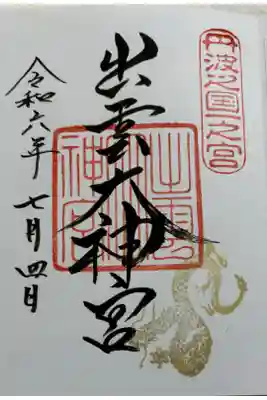 丹波之国一之宮
出雲大神宮
出雲
神宮
令和六年
七月四日